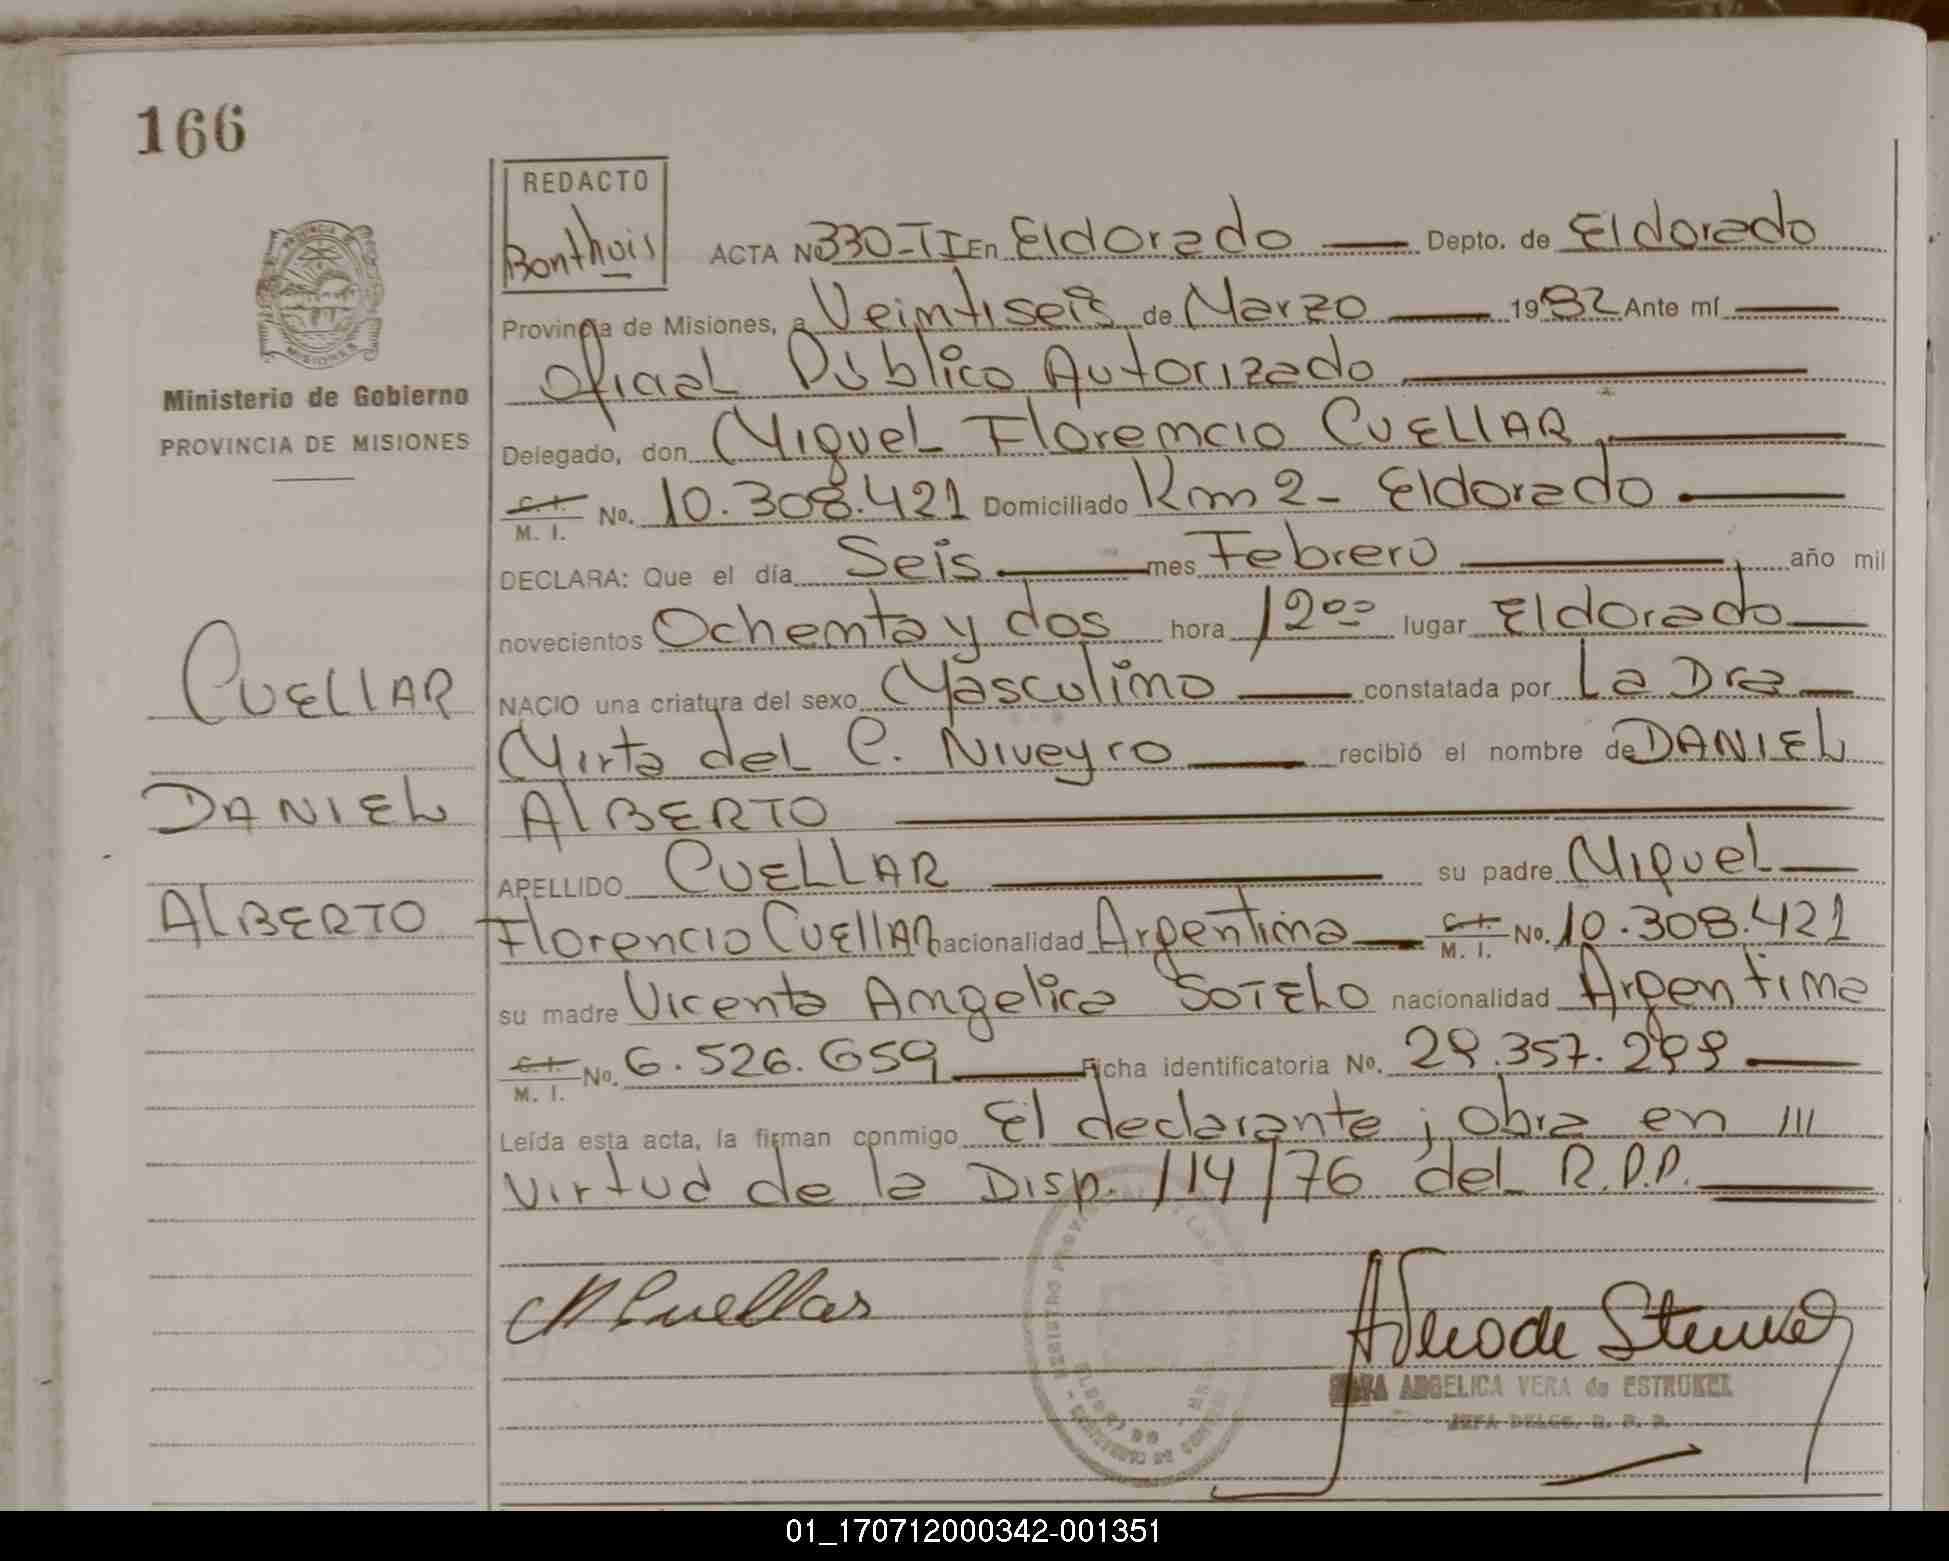 166
REDACTO
Bonthuis
ACTA No 330-TI En Eldorado Depto. de Eldorado
Provincia de Misiones, a Veintiseis de Marzo 1982 Ante mí
Oficial Público Autorizado
Delegado, don Miguel Florencio CUELLAR
C. I. M. I. No. 10.308.421 Domiciliado Km 2 - Eldorado
DECLARA: Que el día Seis mes Febrero, año mil
novecientos Ochenta y dos hora 12 00 lugar Eldorado
NACIO una criatura del sexo Masculino constatada por La Dra
Mirta del C. Niveyro recibió el nombre de DANIEL
ALBERTO
APELLIDO CUELLAR su padre Miguel
Florencio CUELLAR nacionalidad Argentina C. I. M. I. No. 10.308.421
su madre Vicenta Angelica SOTELO nacionalidad Argentina
C. I. M. I. No. 6.526.659 Ficha identificatoria No. 29.357.299
Leída esta acta, la firman conmigo El declarante; obra en ///
virtud de la Disp. 114/76 del R.P.P.
M Cuellar
A Vera de
ANGELICA VERA de ESTRUKEL
JEFA DELEG. R. P. P.
REGISTRO PROVINCIAL DE LAS PERSONAS
ELDORADO
Ministerio de Gobierno
PROVINCIA DE MISIONES
PROVINCIA DE
MISIONES
CUELLAR
DANIEL
ALBERTO
01_170712000342-001351